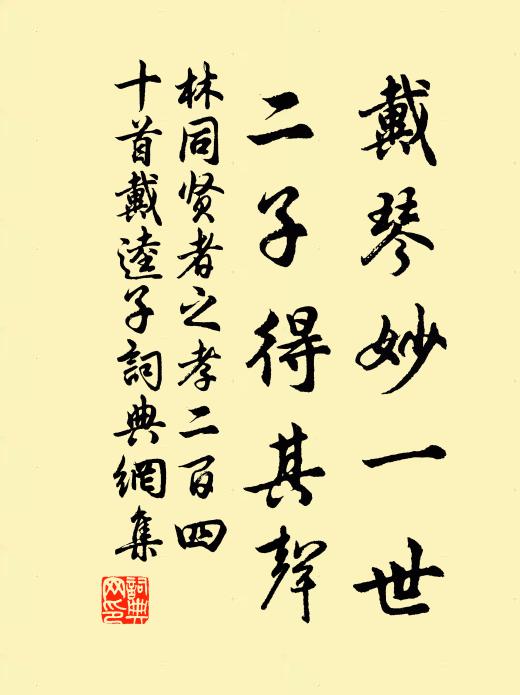 戴琴妙一世
二子得其聲
林同贤者之孝二百四
十首戴逵子詞典網集